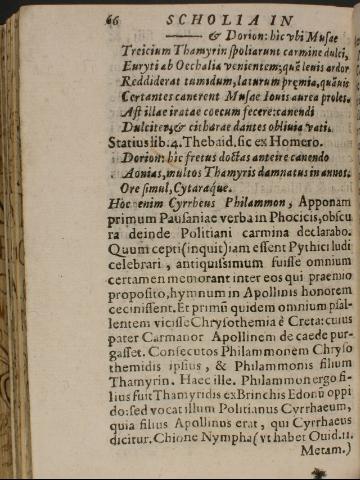 66 SCHOLIA IN
& Dorion: hic vbi Musae
Treicium Thamyrin spoliarunt carmine dulci,
Euryti ab Oechalia venientem; quã leuis ardor
Reddiderat tumidum, laturum pręmia, quãuis
Certantes canerent Musae Iouis aurea proles.
Ast illae iratae coecum fecere: canendi
Dulcitev; & citharae dantes obliuia vati.
Statius lib. 4. Thebaid. sic ex Homero.
Dorion: hic fretus doctas anteire canendo
Aonias, multos Thamyris damnatus in annos.
Ore simul, Cytaraque.
Hoc enim Cyrrheus Philammon, Apponam
primum Pausaniae verba in Phocicis, obscu
ra deinde Politiani carmina declarabo.
Quum cepti (inquit) iam essent Pythici ludi
celebrari, antiquissimum fuisse omnium
certamen memorant inter eos qui praemio
proposito, hymnum in Apollinis honorem
cecinissent. Et primũ quidem omnium psal-
lentem vicisse Chrysothemia è Creta: cuius
pater Carmanor Apollinem de caede pur-
gasset. Consecutos Philammonem Chryso
themidis ipsius, & Philammonis filium
Thamyrin. Haec ille. Philammon ergo fi-
lius fuit Thamyridis ex Brinchis Edonũ oppi
do: sed vocat illum Politianus Cyrrhaeum,
quia filius Apollinis erat, qui Cyrrhaeus
dicitur. Chione Nympha (vt habet Ouid. 11.
Metam.)